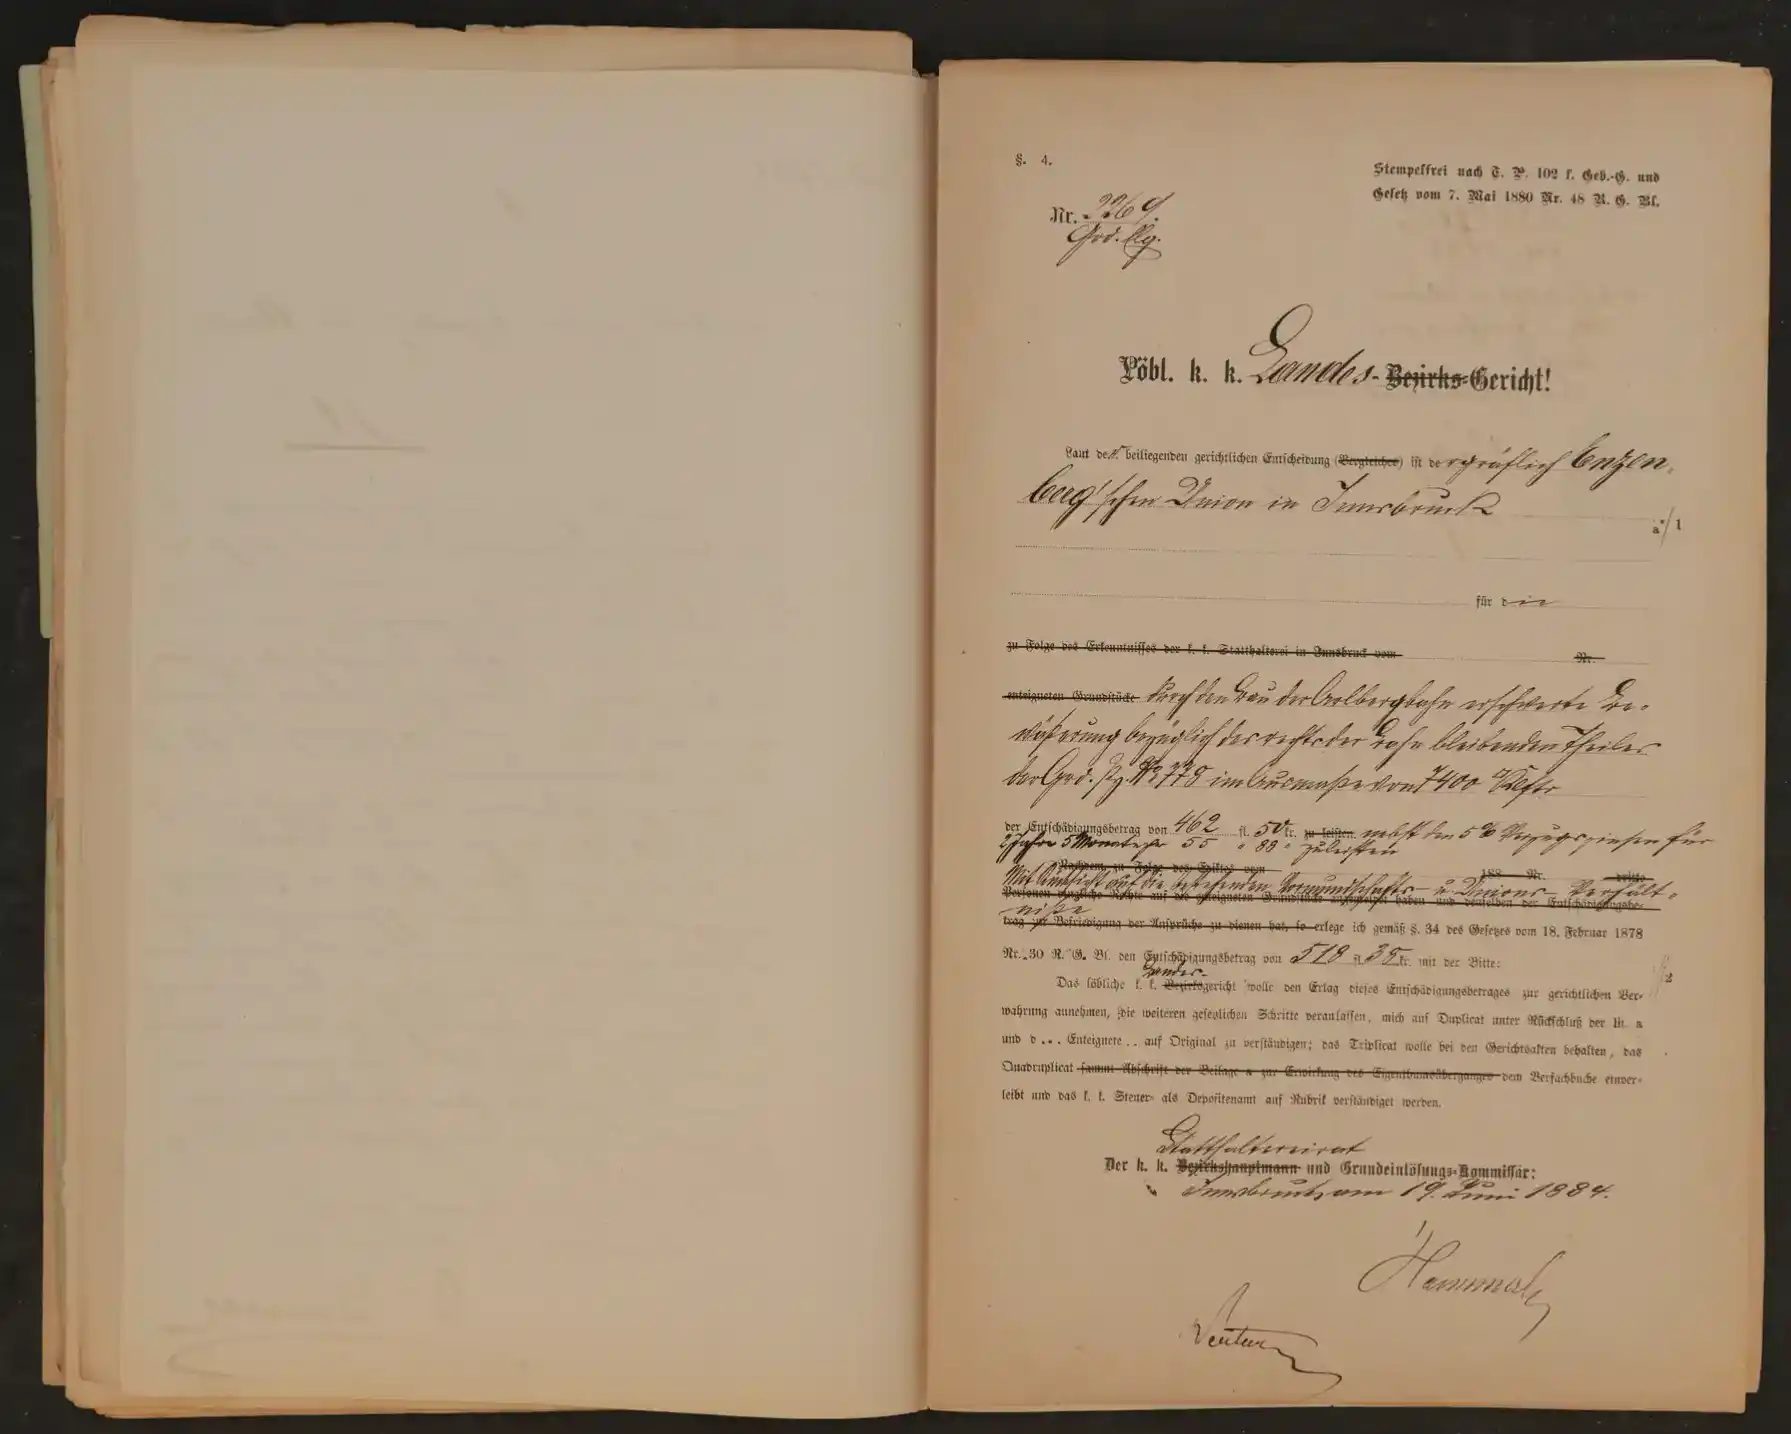 §. 4.
Stempelfrei nach T. P. 102 f. Geb.-G. und
Gesetz vom 7. Mai 1880 Nr. 48 R. G. Bl.
Nr. 2269.
Grd. Elg.
Löbl. k. k. Landes- Bezirks-Gericht!
Laut der beiliegenden gerichtlichen Entscheidung (Vergleiches) ist der gräflich Enzen-
berg'schen Union in Innsbruck
a·/1
für die
zu Folge des Erkenntnisses der k. k. Statthalterei in Innsbruck vom Nr.
enteigneten Grundstücke durch den Bau der Arlbergbahn erschwerte Be-
wässerung bezüglich des rechts der Bahn bleibenden Theiles
der Grd. Pz. No 778 im Ausmaße von 7400 □Klftr
der Entschädigungsbetrag von 462 fl. 50 kr. zu leisten nebst den 5% Verzugszinsen für
2 Jahre 5 Monate per 55 " 88 " zu leisten
Nachdem zu Folge des Ediktes vom 188 Nr. dritte
Mit Rücksicht auf die bestehenden Vormundschafts- u. Unions-Verhält-
Personen dingliche Rechte auf die enteigneten Grundstücke angemeldet haben und denselben der Entschädigungsbe-
niße
trag zur Befriedigung der Ansprüche zu dienen hat, so erlege ich gemäß §. 34 des Gesetzes vom 18. Februar 1878
Nr. 30 R. G. Bl. den Entschädigungsbetrag von 518 fl 38 kr. mit der Bitte:
Landes-
Das löbliche k. k. Bezirksgericht wolle den Erlag dieses Entschädigungsbetrages zur gerichtlichen Ver-
·/. 2
wahrung annehmen, die weiteren gesetzlichen Schritte veranlassen, mich auf Duplicat unter Rückschluß der lit. a
und d... Enteignete.. auf Original zu verständigen; das Triplicat wolle bei den Gerichtsakten behalten, das
Quadruplicat sammt Abschrift der Beilage a zur Erwirkung des Eigenthumsüberganges dem Verfachbuche einver-
leibt und das k. k. Steuer- als Depositenamt auf Rubrik verständiget werden.
Statthaltereirat
Der k. k. Bezirkshauptmann und Grundeinlösungs-Kommissär:
Innsbruck, am 19. Juni 1884.